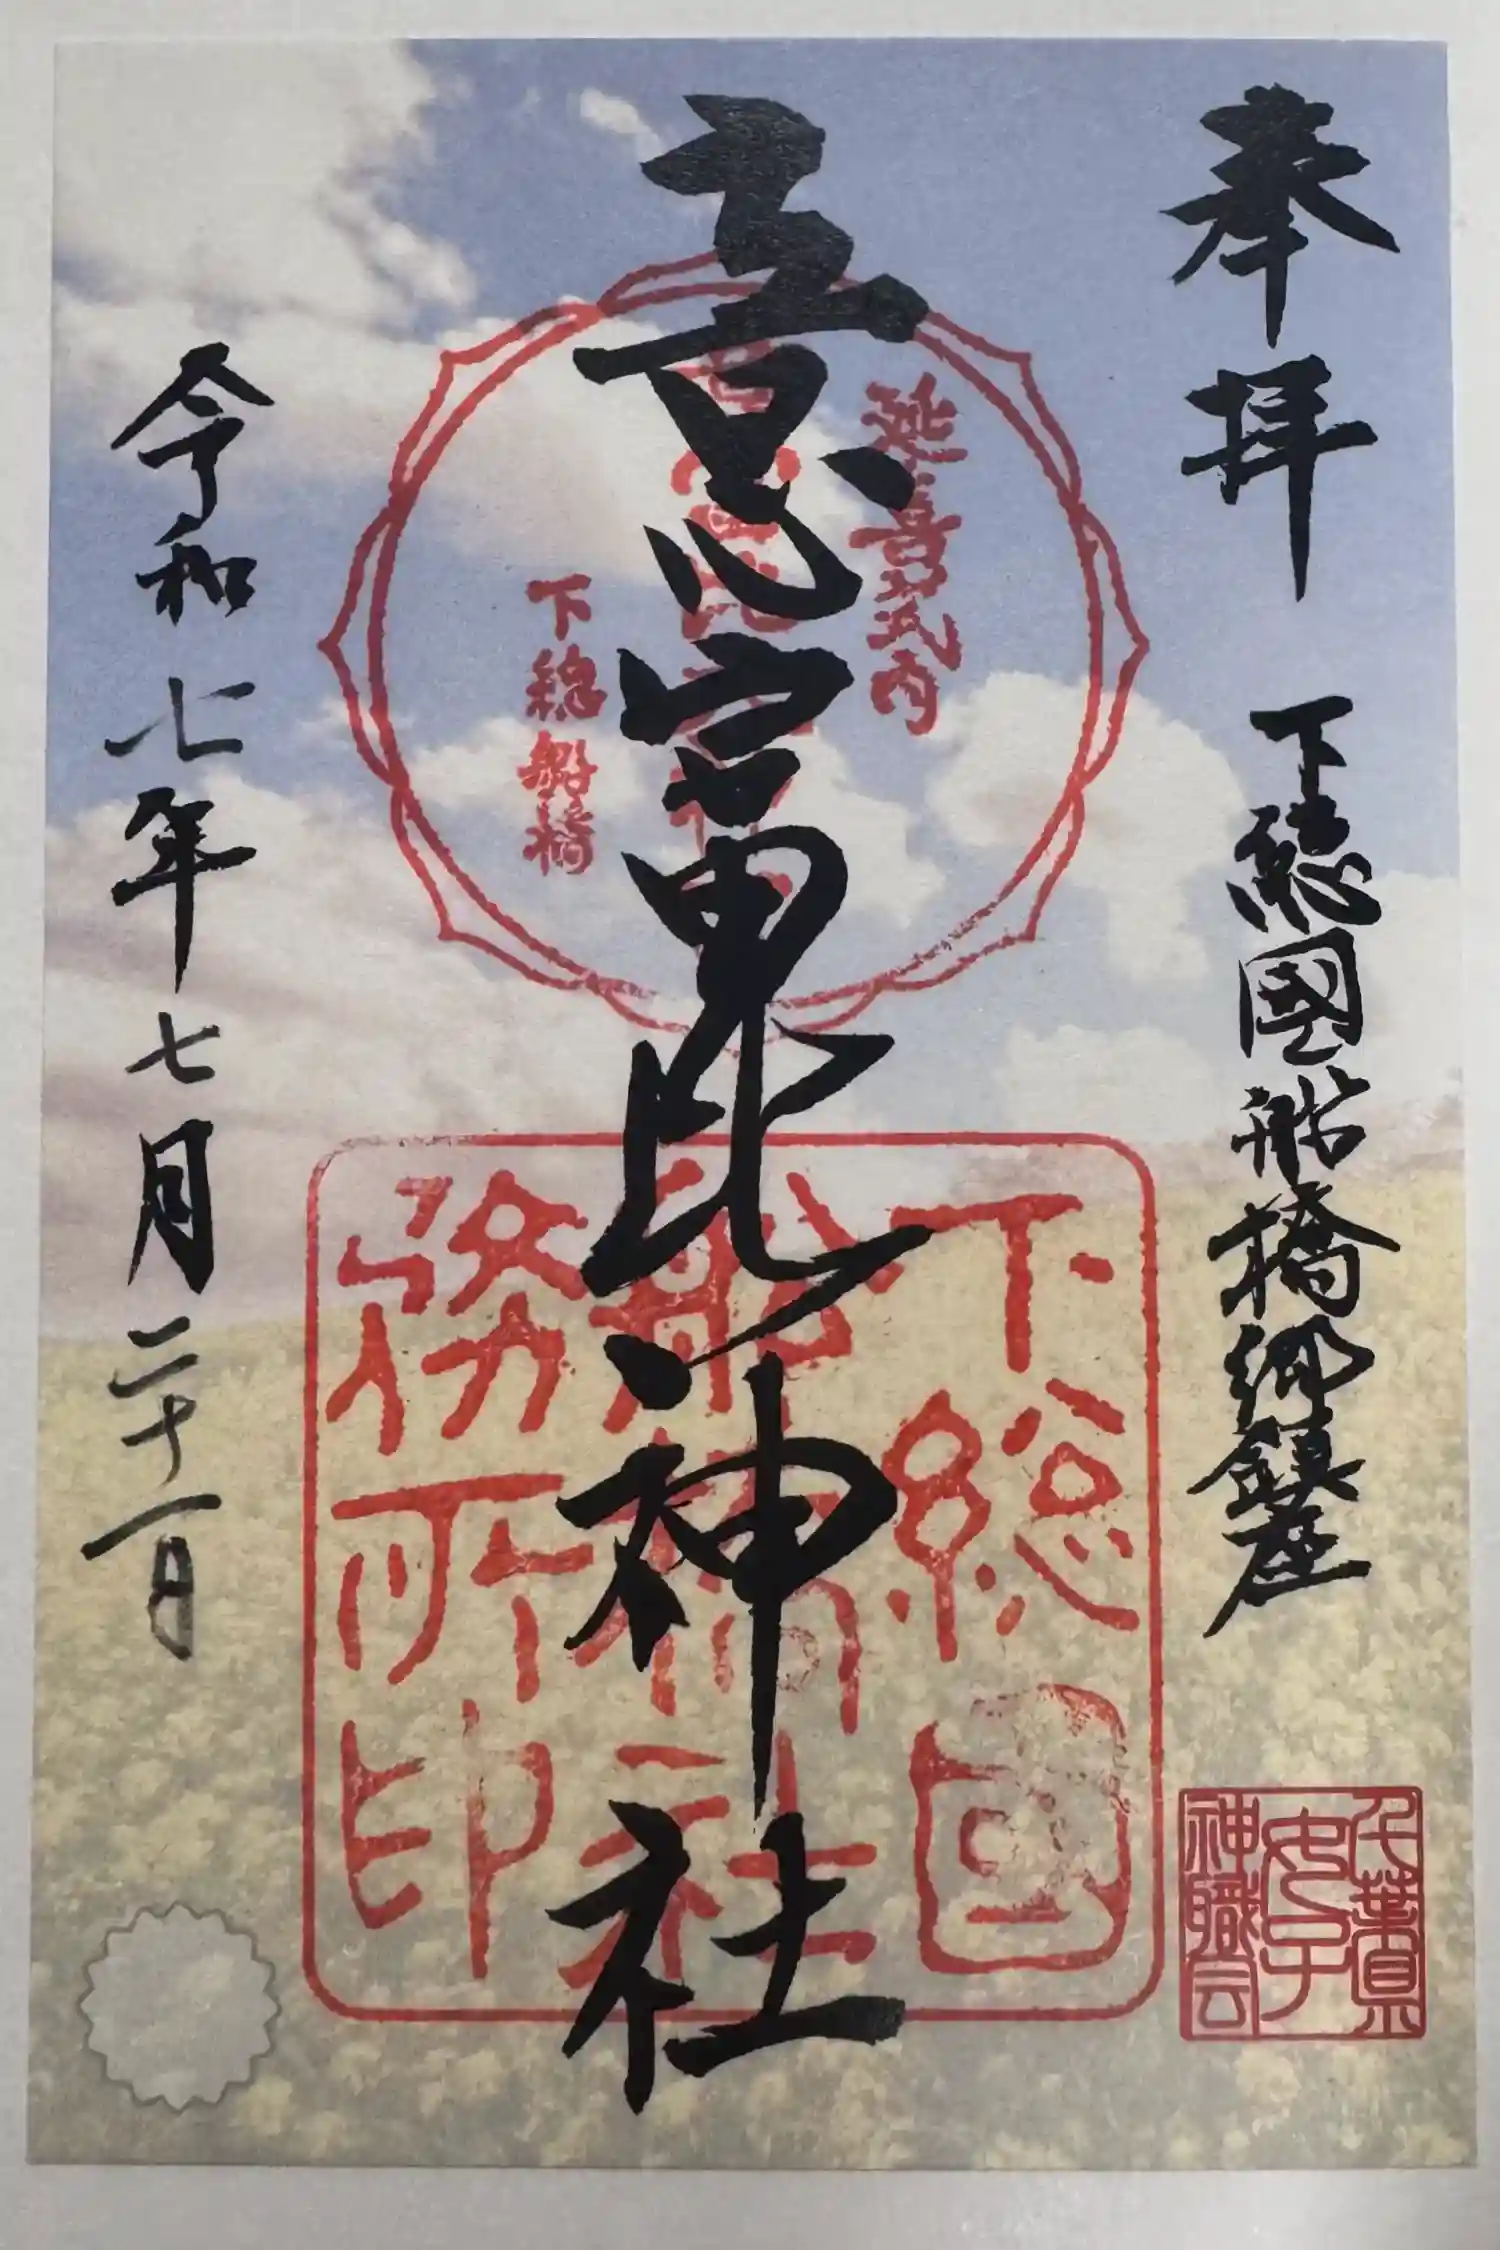 奉拝
下總國船橋郷鎮座
意富比神社
令和七年七月二十一日
延喜式内
下総船橋
下総国
船橋社
務所印
千葉県
女子
神職会